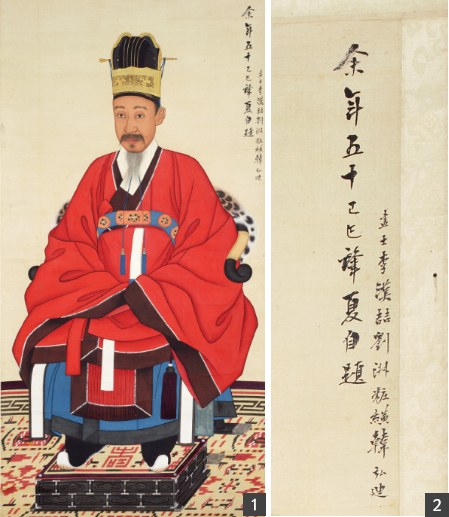 余年五十己巳肇夏自題
畫士李漢喆劉淑粧䌙韓弘迪
1
余年五十己巳肇夏自題
畫士李漢喆劉淑粧䌙韓弘迪
2